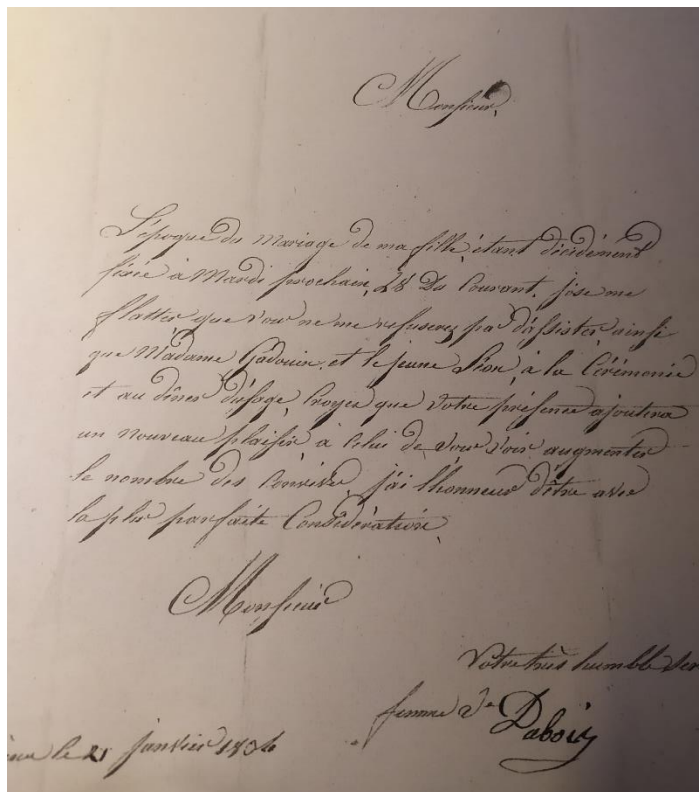 Monsieur,
L'époque du Mariage de ma fille, étant décidément
fixée à Mardi prochain, 28 Du Courant, j'ose me
flatter que vous ne me refuserez pas d'assister, ainsi
que Madame Gadouin, et le jeune Léon, à la Cérémonie
et au dîner d'usage, Croyez que Votre présence ajoutera
un nouveau plaisir, à Celui de vous voir augmenter
le nombre des Convives, j'ai lhonneur d'être avec
la plus parfaite Considération,
Monsieur
Votre très humble Ser
femme Ve Daboiy
le 21 janvier 1834